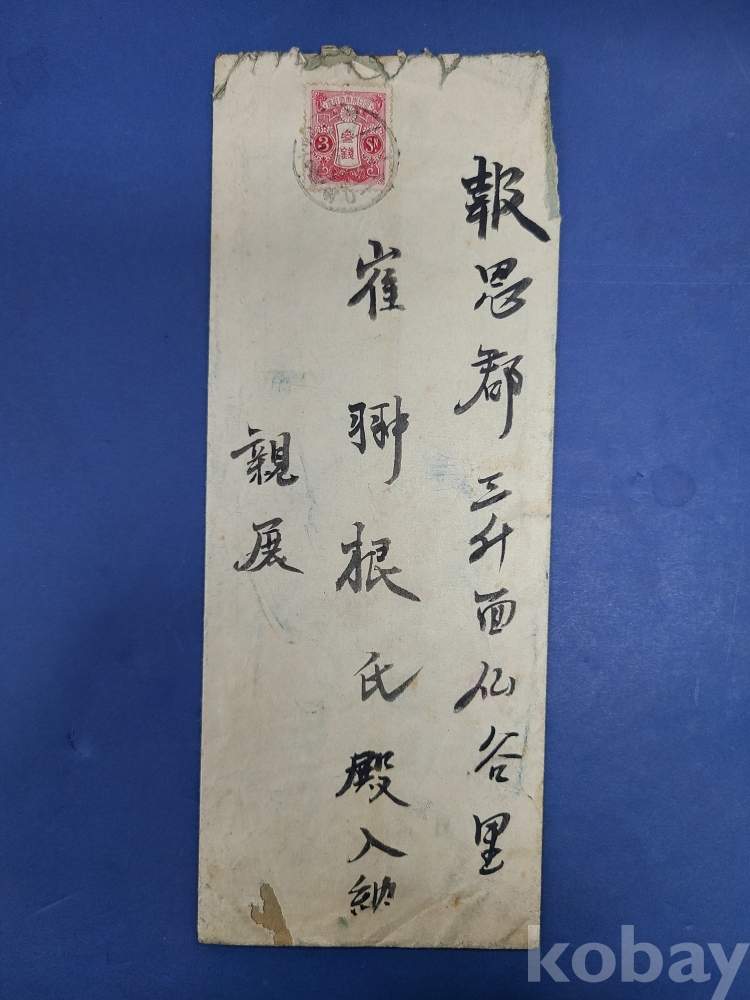 報恩郡三升面仙谷里
崔翀根氏殿入納
親展
3
叁錢
Sn
kobay